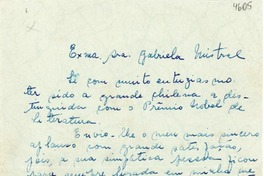 4605
Exma. Sra. Gabriela Mistral
Li com muito entuziasmo
ter sido a grande chilena a des-
tinguida com o Prêmio Nobel de
Literatura.
Envio-lhe o meu mais sincero
aplauso com grande satisfação,
pois, a sua simpática pessoa ficou
para sempre gravada em minha me